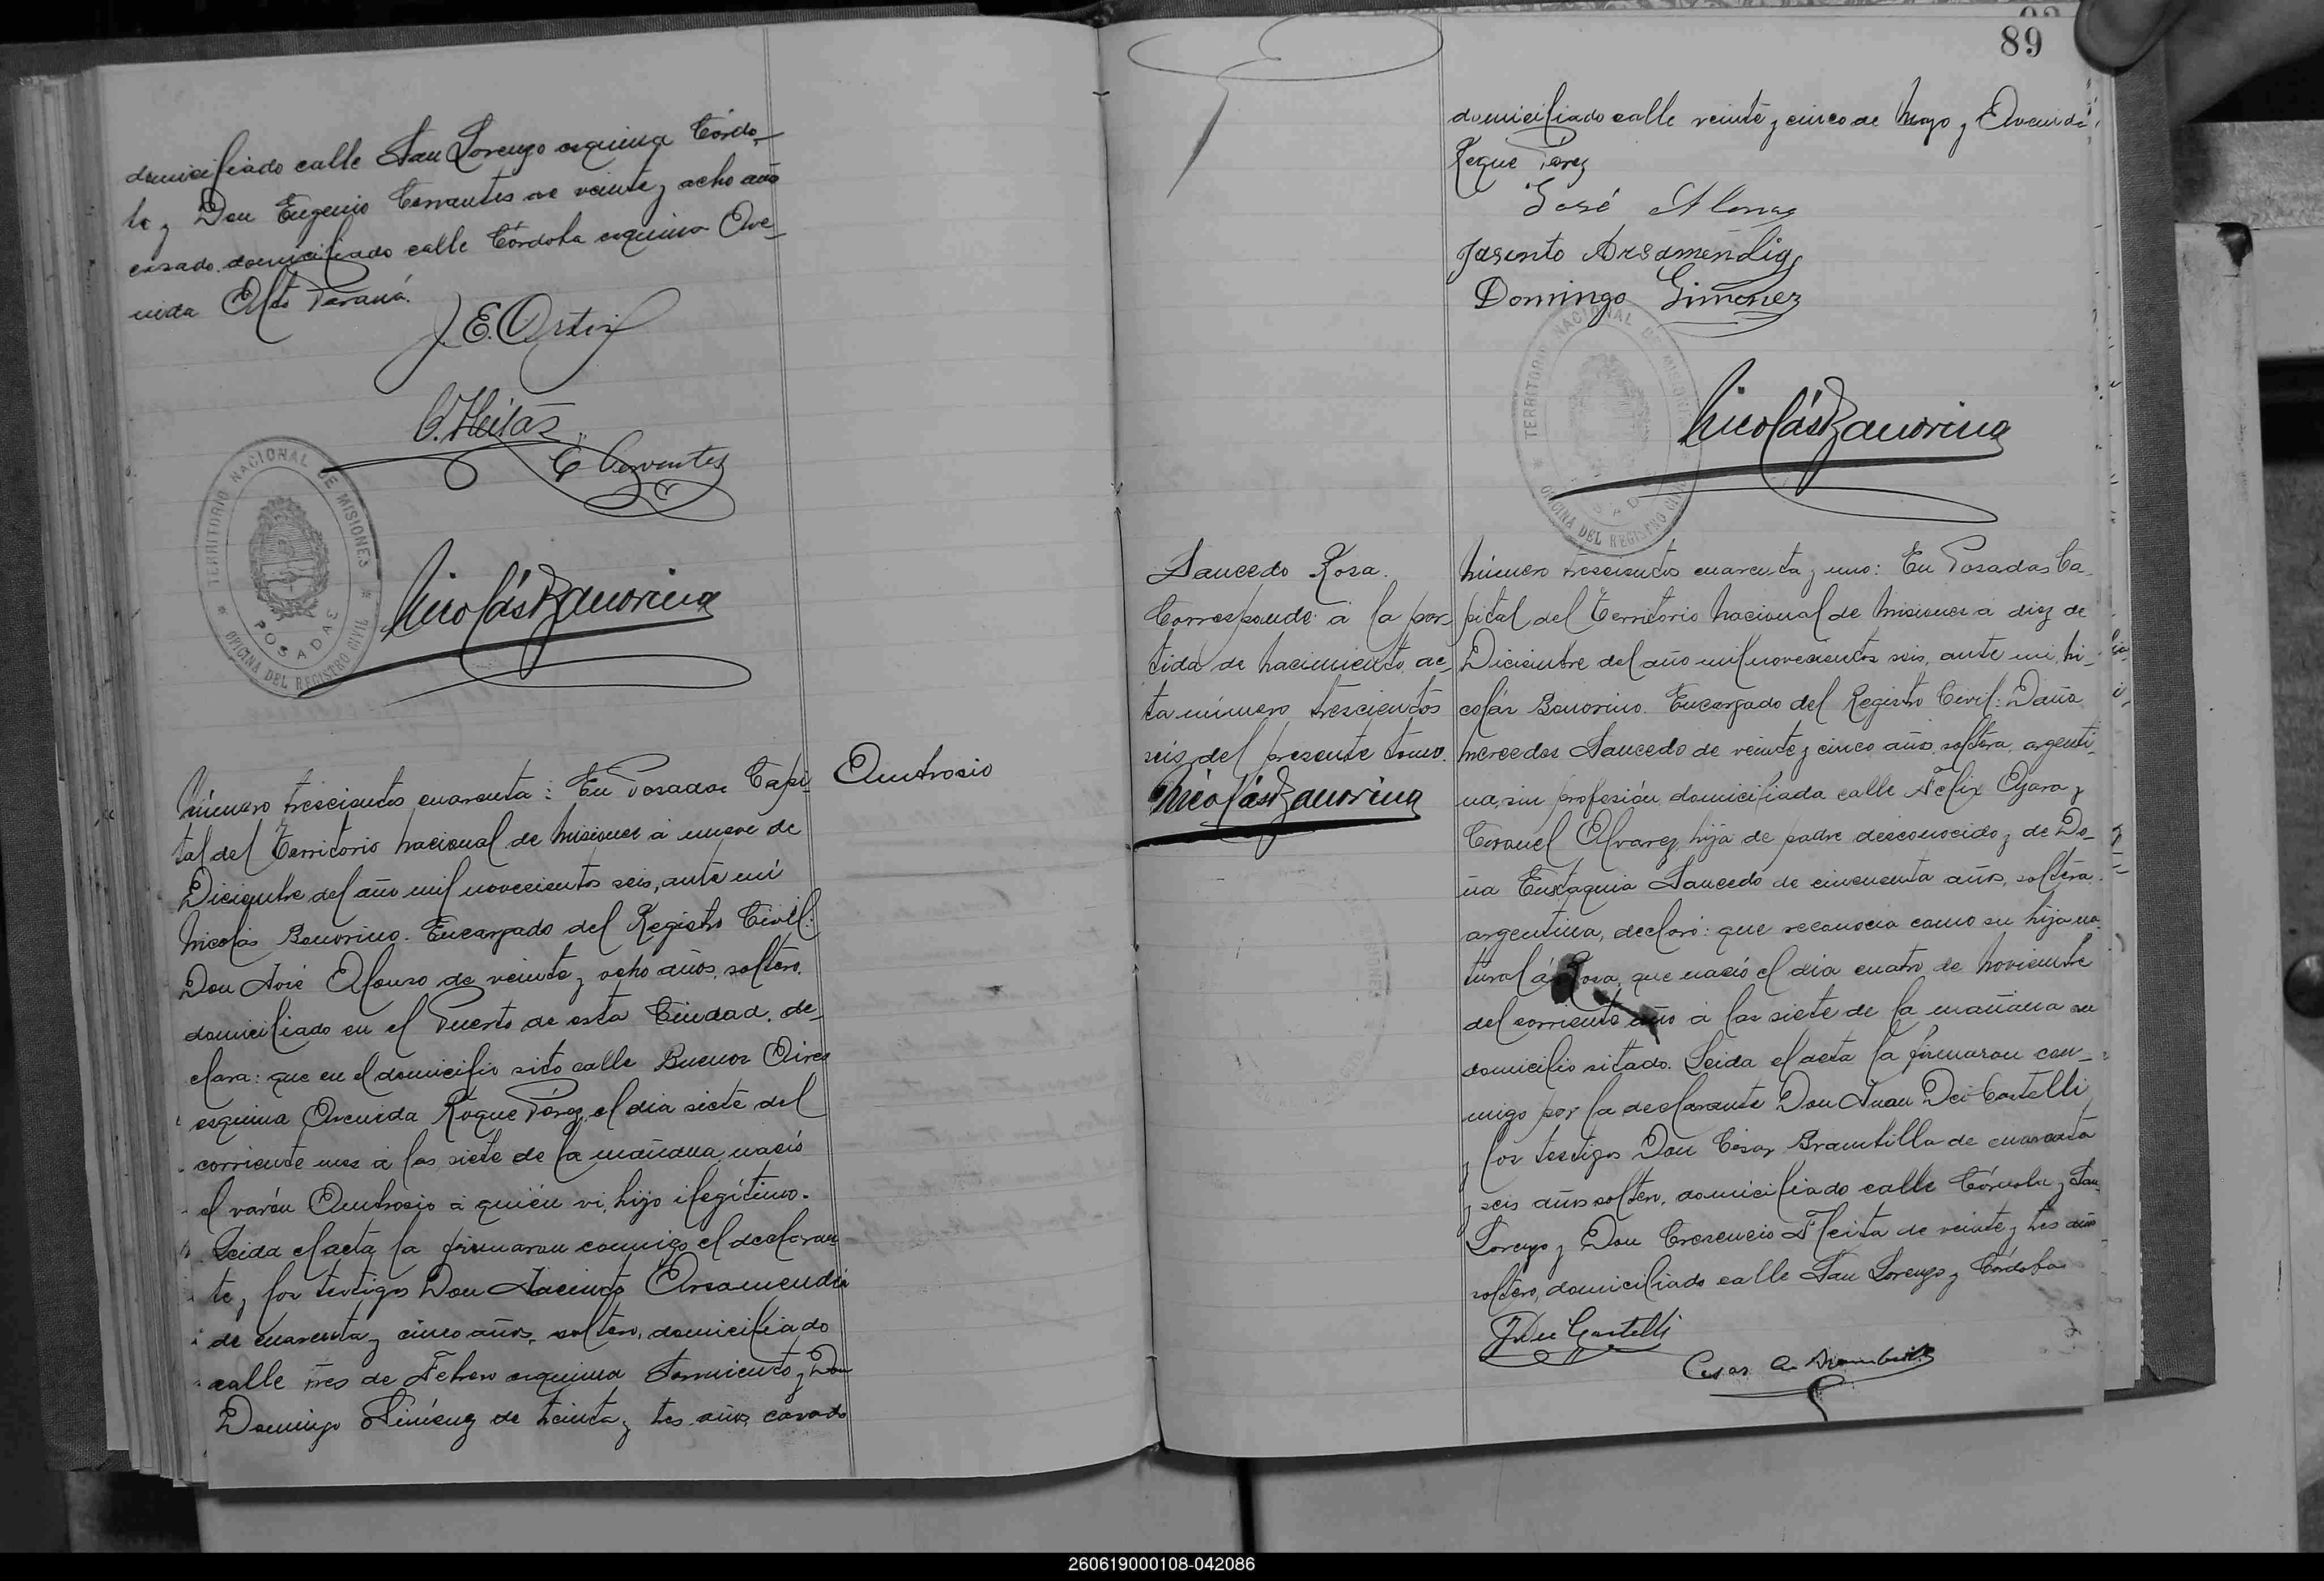 domiciliado calle San Lorenzo esquina Córdo-
ba y Don Eugenio Cervantes de veinte y ocho años
casado domiciliado calle Córdoba esquina Ave-
nida Alto Paraná.
J. E. Ortiz
C. Fleitas
E Cervantes
TERRITORIO NACIONAL DE MISIONES
POSADAS
OFICINA DEL REGISTRO CIVIL
Nicolás Bonorino
Número trescientos cuarenta: En Posadas Capi-
tal del Territorio Nacional de Misiones á nueve de
Diciembre del año mil novecientos seis, ante mí
Nicolás Bonorino. Encargado del Registro Civil:
Don José Alonso de veinte y ocho años, soltero,
domiciliado en el Puerto de esta Ciudad, de-
clara: que en el domicilio sito calle Buenos Aires
esquina Avenida Roque Pérez, el dia siete del
corriente mes á las siete de la mañana nació
el varón Ambrosio á quién vi, hijo ilegítimo.
Leida el acta la firmaron conmigo el declaran
te y los testigos Don Jacinto Arsamendia
de cuarenta y cinco años, soltero, domiciliado
calle Tres de Febrero esquina Sarmiento y Don
Domingo Giménez de treinta y tres años, casado
Ambrosio
89
domiciliado calle veinte y cinco de Mayo y Avenida
Roque Perez
José Alonso
Jasinto Arsamendia
Domingo Gimenez
TERRITORIO NACIONAL DE MISIONES
POSADAS
OFICINA DEL REGISTRO CIVIL
Nicolás Bonorino
Saucedo Rosa.
Corresponde á la par-
tida de nacimiento, ac-
ta número trescientos
seis del presente tomo.
Nicolás Bonorino
Número trescientos cuarenta y uno: En Posadas Ca-
pital del Territorio Nacional de Misiones á diez de
Diciembre del año mil novecientos seis, ante mi, Ni-
colás Bonorino. Encargado del Registro Civil: Doña
Mercedes Saucedo de veinte y cinco años, soltera, argenti-
na, sin profesión, domiciliada calle Felix Azara y
Coronel Alvarez, hija de padre desconocido y de Do-
ña Eustaquia Saucedo de cincuenta años, soltera
argentina, declaró: que reconocia como su hija na-
tural á Rosa, que nació el dia cuatro de Noviembre
del corriente año á las siete de la mañana su
domicilio sitado. Leida el acta la firmaron con-
migo por la declarante Don Juan Dei Castelli
y los testigos Don César Brambilla de cuarenta
y seis años soltero, domiciliado calle Córdoba y San
Lorenzo y Don Crescencio Fleita de veinte y tres años
soltero, domiciliado calle San Lorenzo y Córdoba
J Dei Castelli
Cesar A. Brambilla
260619000108-042086